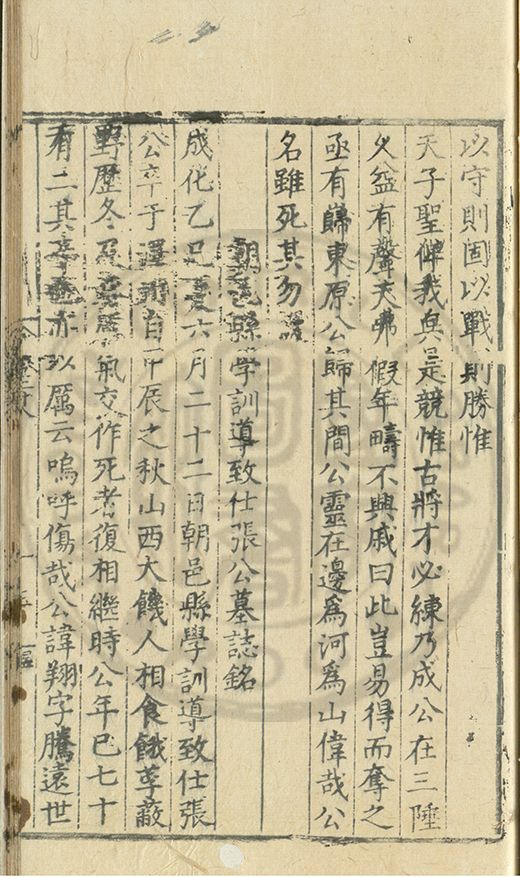 以守則固以戰則勝惟
天子聖俾我與是競惟古將才必練乃成公在三陲
久益有聲天弗假年疇不興戚曰此豈易得而奪之
亟有歸東原公歸其間公靈在邊為河為山偉哉公
名雖死其勿
朝邑縣學訓導致仕張公墓誌銘
成化乙巳夏六月二十二日朝邑縣學訓導致仕張
公卒于自甲辰之秋山西大饑人相食餓莩蔽
野歷冬及氣交作死者復相繼時公年巳七十
有二其卒亦以厲云嗚呼傷哉公諱翔字騰遠世